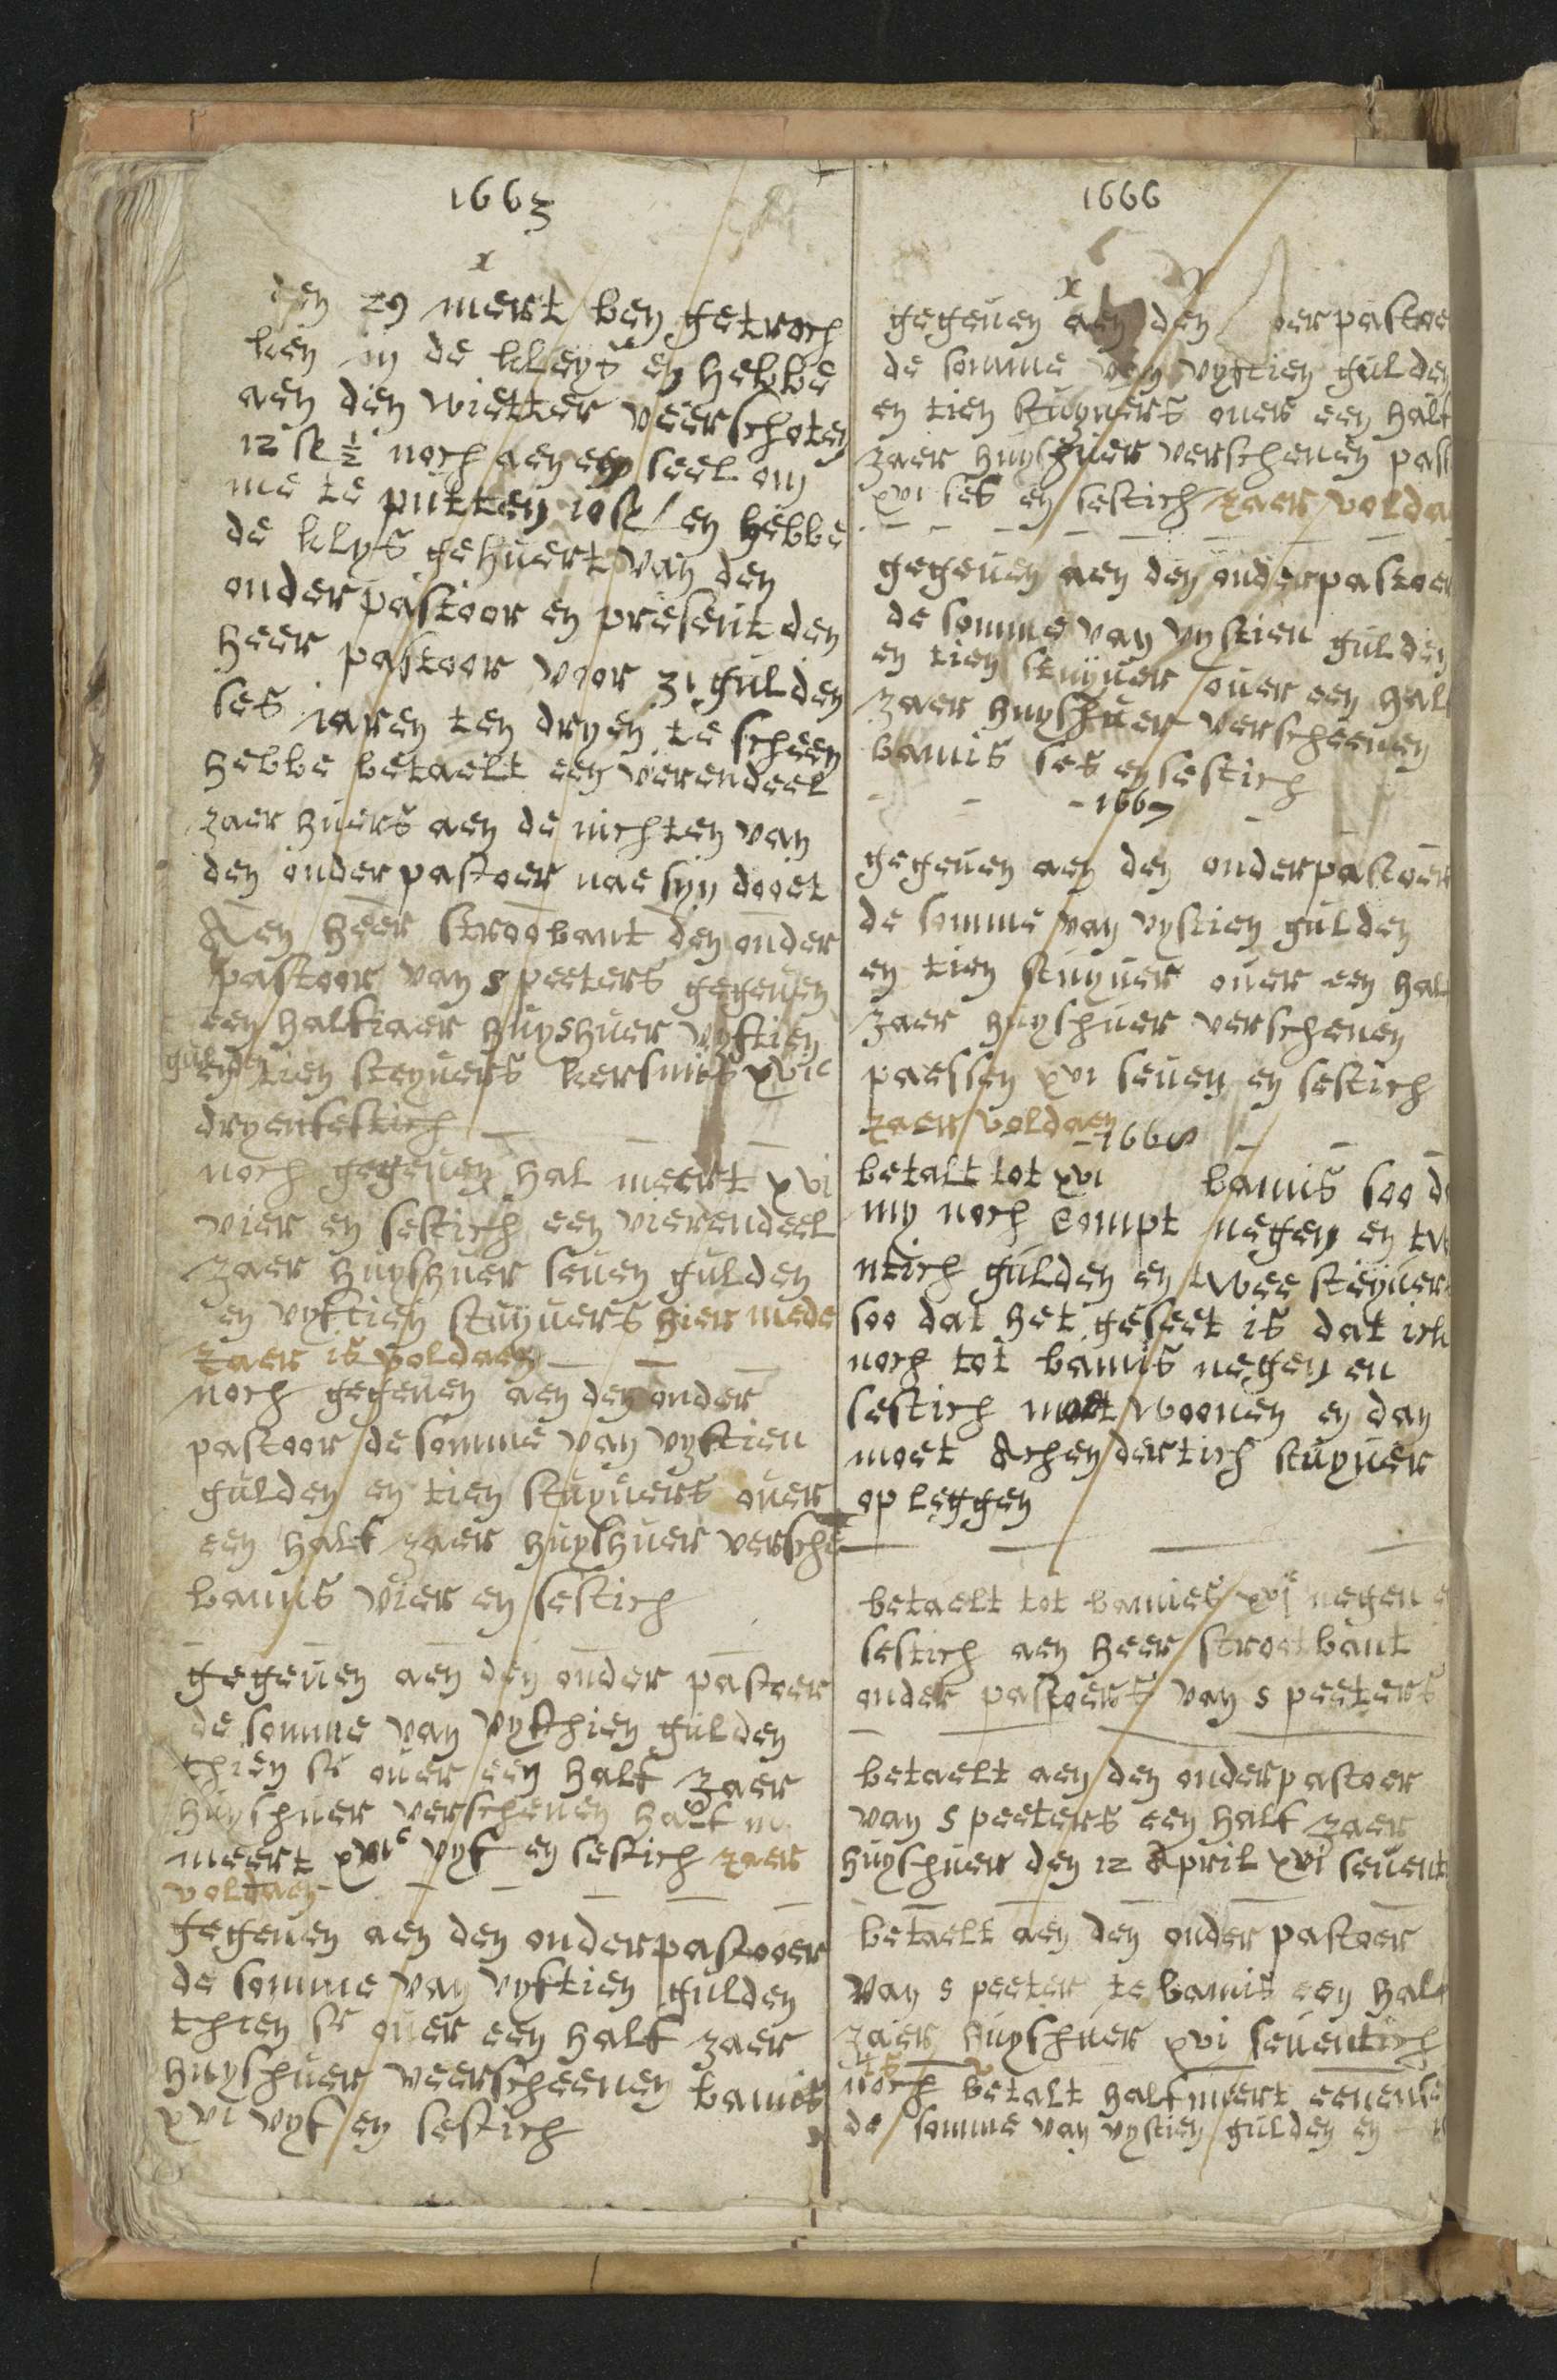 1663
x
den 29 mert ben getroch
ken in de kleys en hebbe
aen den wietter veerschoten
12 st ½ noch aen een seel om
me te putten 10 st / en hebbe
de klys gehuert van den
onderpastoor en present den
heer pastoor voor 31 gulden
ses iaren ten dryen te scheen
hebbe betaelt een verendeel
zaer huers aen de nichten van
den onderpastoer nae syn dooet
Aen heer stroobant den onder
pastoor van s peeters gegeuen
een halfiaer huyshuer vyftien
gulden
en tien steyuers kersmis xvic
dryensestich
noch gegeuen hal meert xvi
vier en sestich een vierendeel
zaer huyshuer seuen gulden
en vyftien stuyuers hier mede
zaer is voldaen
noch gegeuen aen den onder
pastoor de somme van vyftien
gulden en tien stuyuers ouer
een half zaer huyshuer versche
bamis vier en sestich
gegeuen aen den onder pastoer
de somme van vyfthien gulden
thien st ouer een half zaer
huyshuer verschenen half
meert xvic vyf en sestich zaer
voldaen
gegeuen aen den onderpastooer
de somme van vyftien gulden
thien st ouer een half zaer
huyshuer veerscheenen bamis
xvi vyf en sestich
1666
x
gegeuen aen den oerpastoe
de somme van vyftien gulden
en tien stuyuers ouer een half
zaer huyshuer verschenen pas
xvi ses en sestich zaer volda
gegeuen aen den onderpastoer
de somme van vystien gulden
en tien stuyuer ouer een hal
zaer huyshuer verscheenen
bamis ses en sestich
1667
gegeuen aen den onderpastoer
de somme van vystien gulden
en tien stuyuer ouer een hal
zaer huyshuer verschenen
paessen xvi seuen en sestich
zaer voldaen
1668
betalt tot xvi bamis soo d
my noch compt negen en tw
ntich gulden en twee steyuer
soo dat het geseet is dat ick
noch tot bamis negen en
sestich moet woonen en dan
moet achen dertich stuyuer
op leggen
betaelt tot bamies xvic negen e
sestich aen heer strootbant
onder pastoers van s peeters
betaelt aen den onderpastoer
van s peeters een half zaer
huyshuer den 12 April xvi seuent
betaelt aen den onder pastoer
van s peeter te bamis een half
zaer huyshuer xvi seuentich
noch betalt half meert eenense
de somme van vystien gulden en